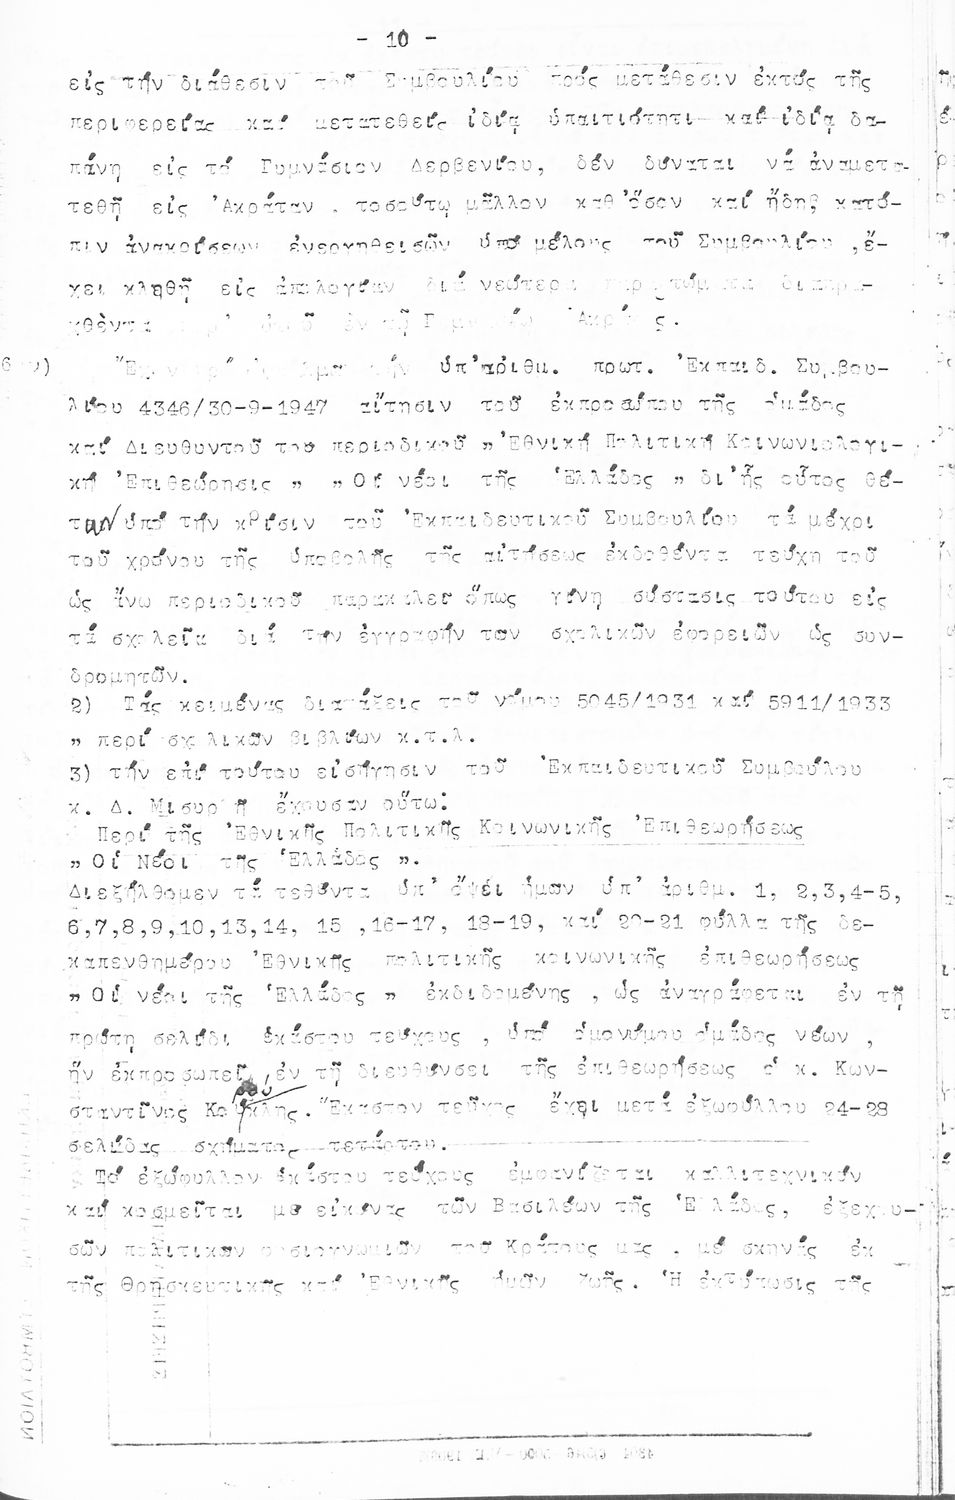 - 10 -
εἰς τήν διάθεσιν τοῦ Συμβουλίου πρός μετάθεσιν ἐκτός τῆς
περιφερείας καί μετατεθείς ἰδίᾳ ὑπαιτιότητι καί ἰδίᾳ δα-
πάνῃ εἰς τό Γυμνάσιον Δερβενίου, δέν δύναται νά ἀναμετα-
τεθῇ εἰς Ἀκράταν , τοσούτῳ μᾶλλον καθ'ὅσον καί ἤδη κατό-
πιν ἀνακρίσεων ἐνεργηθεισῶν ὑπό μέλους τοῦ Συμβουλίου ,ἔ-
χει κληθῆ εἰς ἀπολογίαν διά νεώτερα παραπτώματα διαπρα-
χθέντα ἐν τῷ
ὑπ'ἀριθμ. πρωτ. Ἐκπαιδ. Συμβου-
λίου 4346/30-9-1947 αἴτησιν τοῦ ἐκπροσώπου τῆς ὁμάδος
καί Διευθυντοῦ του περιοδικοῦ " Ἐθνική Πολιτική Κοινωνιολογι-
κή Ἐπιθεώρησις " " Οἱ νέοι τῆς Ἑλλάδος " δι'ἧς οὗτος θέ-
των ὑπό τήν κρίσιν τοῦ Ἐκπαιδευτικοῦ Συμβουλίου τά μέχρι
τοῦ χρόνου τῆς ὑποβολῆς τῆς αἰτήσεως ἐκδοθέντα τεύχη τοῦ
ὡς ἄνω περιοδικοῦ παρακαλεῖ ὅπως γίνῃ σύστασις τούτου εἰς
τά σχολεῖα διά την ἐγγραφήν των σχολικῶν ἐφορειῶν ὡς συν-
δρομητῶν.
2) Τάς κειμένας διατάξεις τοῦ νόμου 5045/1931 καί 5911/1933
" περί σχολικῶν βιβλίων κ.τ.λ.
3) τήν ἐπί τούτου εἰσήγησιν τοῦ Ἐκπαιδευτικοῦ Συμβούλου
κ. Δ. ἔχουσαν οὕτω:
Περί τῆς Ἐθνικῆς Πολιτικῆς Κοινωνικῆς Ἐπιθεωρήσεως
" Οἱ Νέοι τῆς Ἑλλάδος ".
Διεξήλθομεν τά τεθέντα ὑπ' ὄψει ἡμῶν ὑπ' ἀριθμ. 1, 2,3,4-5,
6,7,8,9,10,13,14, 15 ,16-17, 18-19, καί 20-21 φύλλα τῆς δε-
καπενθημέρου Ἐθνικῆς πολιτικῆς κοινωνικῆς ἐπιθεωρήσεως
" Οἱ νέοι τῆς Ἑλλάδος " ἐκδιδομένης , ὡς ἀναγράφεται ἐν τῇ
πρώτῃ σελίδι ἑκάστου τεύχους , ὑπό ὁμονύμου ὁμάδος νέων ,
ἥν ἐκπροσωπεῖ ἐν τῇ διευθύνσει τῆς ἐπιθεωρήσεως ὁ κ. Κων-
σταντῖνος . Ἕκαστον τεῦχος ἔχει μετά ἐξωφύλλου 24-28
σελίδας σχήματος τετάρτου.
Τό ἐξώφυλλον ἑκάστου τεύχους ἐμφανίζεται καλλιτεχνικόν
καί κοσμεῖται με εἰκόνας τῶν Βασιλέων τῆς Ἑλλάδος, ἐξεχου-
σῶν πολιτικων φυσιογνωμιῶν τοῦ Κράτους μας , μέ σκηνάς ἐκ
τῆς Θρησκευτικῆς καί Ἐθνικῆς ἡμῶν ζωῆς. Ἡ ἐκτύπωσις τῆς